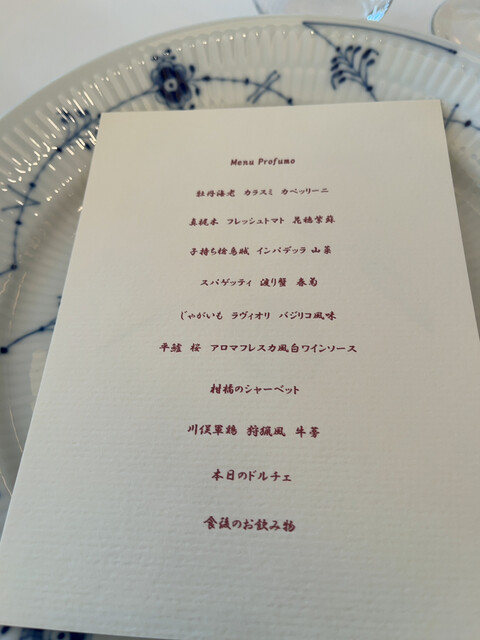 Menu Profumo
牡丹海老 カラスミ カペッリーニ
真梶木 フレッシュトマト 花穂紫蘇
子持ち槍烏賊 インパデッラ 山菜
スパゲッティ 渡り蟹 春菊
じゃがいも ラヴィオリ バジリコ風味
平鱸 桜 アロマフレスカ風白ワインソース
柑橘のシャーベット
川俣軍鶏 狩猟風 牛蒡
本日のドルチェ
食後のお飲み物